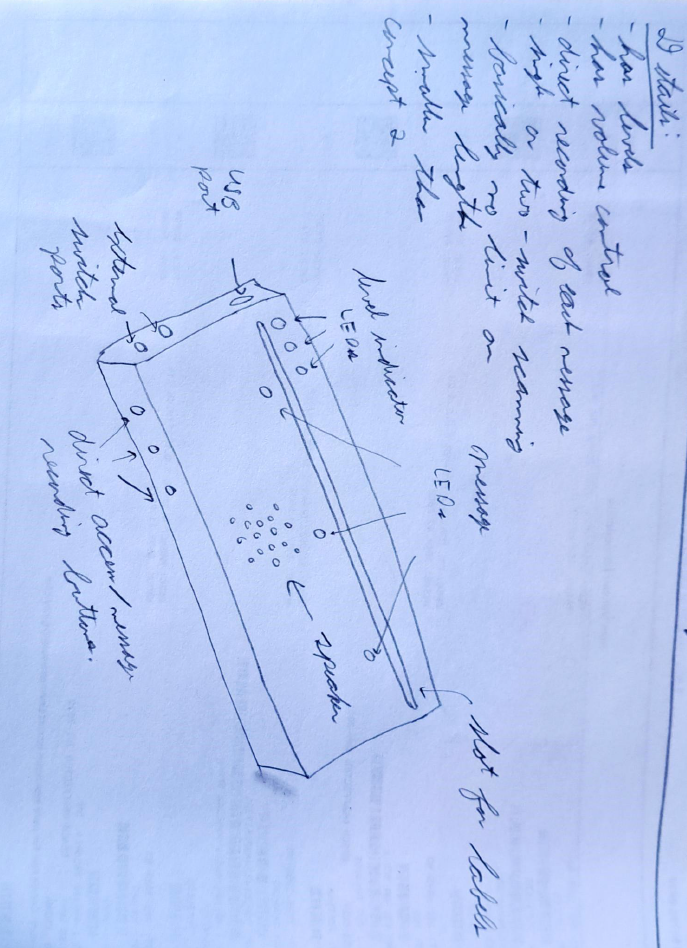 Details:
- has levels
- has volume control
- direct recording of each message
- single or two-switch scanning
- basically no limit on
message length
- smaller than
concept 2
level indicator
LEDs
message
LEDs
USB
port
External
switch
ports
slot for labels
speaker
direct access/message
recording buttons.